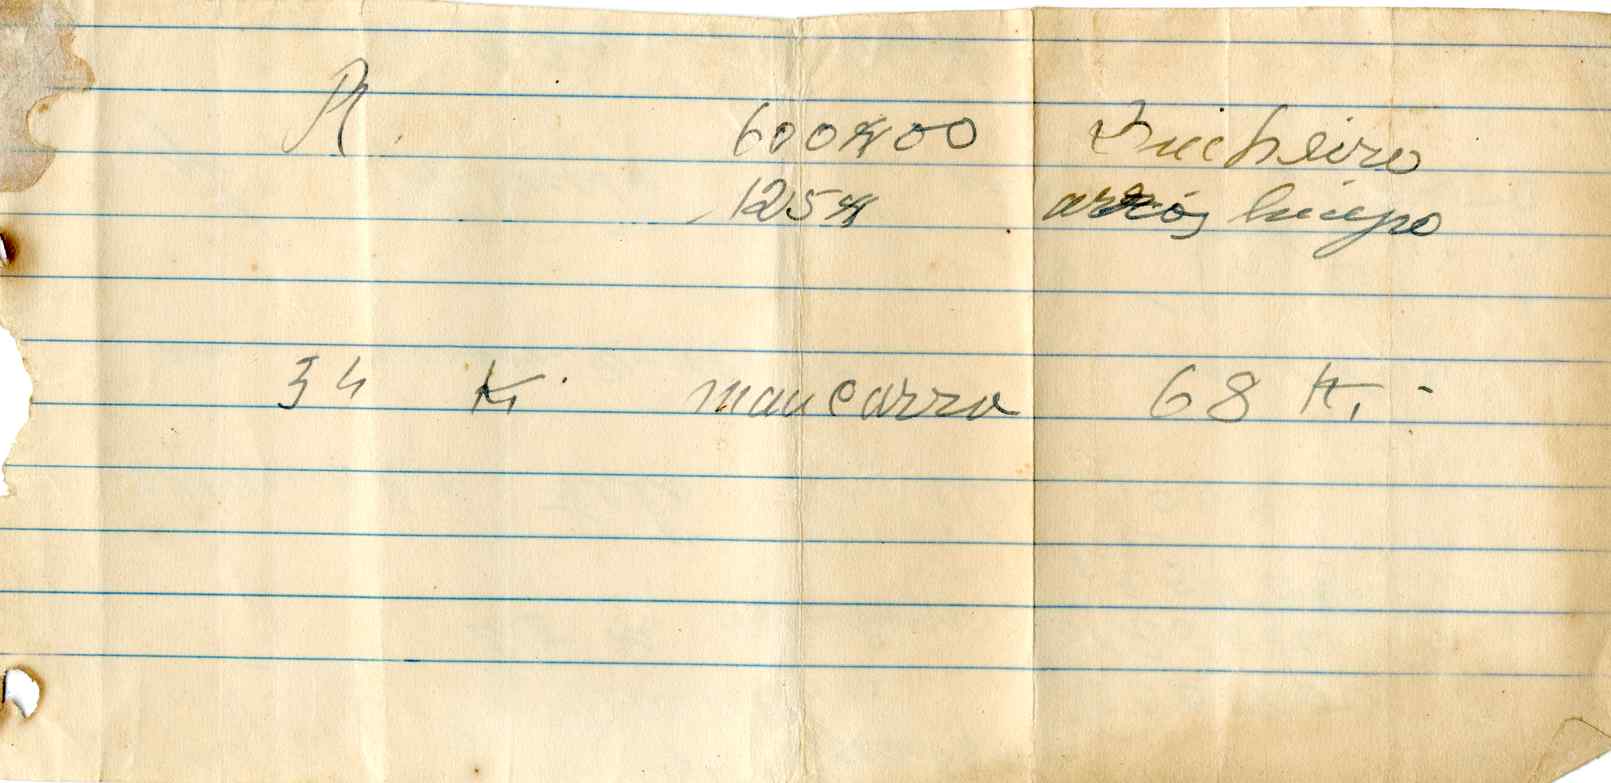 R. 600$00 Dinheiro
125$ arroz limpo
34 K. mancarra 68 K. -